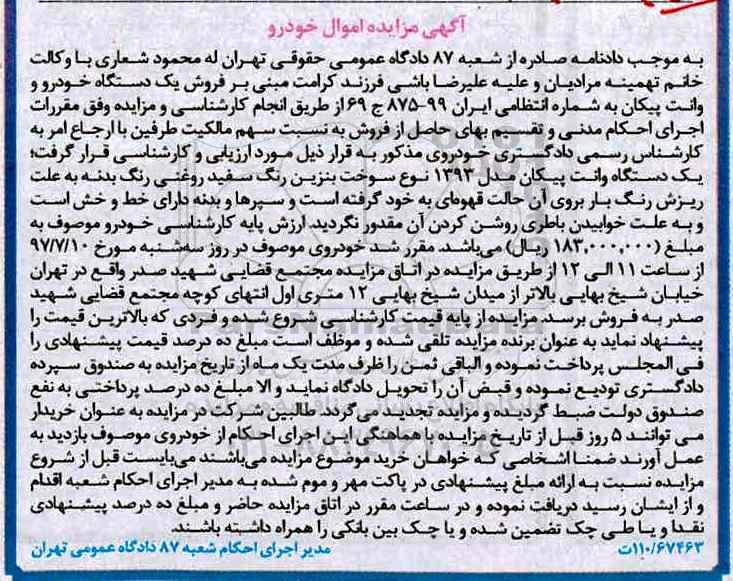 آگهی مزایده اموال خودرو
به موجب دادنامه صادره از شعبه ۸۷ دادگاه عمومی حقوقی تهران له محمود شعاری با وکالت
خانم تهمینه مرادیان و علیه علیرضا باشی فرزند کرامت مبنی بر فروش یک دستگاه خودرو و
وانت پیکان به شماره انتظامی ایران ۹۹-۸۷۵ ج ۶۹ از طریق انجام کارشناسی و مزایده وفق مقررات
اجرای احکام مدنی و تقسیم بهای حاصل از فروش به نسبت سهم مالکیت طرفین با ارجاع امر به
کارشناس رسمی دادگستری خودروی مذکور به قرار ذیل مورد ارزیابی و کارشناسی قرار گرفت؛
یک دستگاه وانت پیکان مدل ۱۳۹۳ نوع سوخت بنزین رنگ سفید روغنی رنگ بدنه به علت
ریزش رنگ بار بروی آن حالت قهوه‌ای به خود گرفته است و سپرها و بدنه دارای خط و خش است
و به علت خوابیدن باطری روشن کردن آن مقدور نگردید. ارزش پایه کارشناسی خودرو موصوف به
مبلغ (۱۸۳,۰۰۰,۰۰۰ ریال) می‌باشد. مقرر شد خودروی موصوف در روز سه‌شنبه مورخ ۹۷/۷/۱۰
از ساعت ۱۱ الی ۱۲ از طریق مزایده در اتاق مزایده مجتمع قضایی شهید صدر واقع در تهران
خیابان شیخ بهایی بالاتر از میدان شیخ بهایی ۱۲ متری اول انتهای کوچه مجتمع قضایی شهید
صدر به فروش برسد. مزایده از پایه قیمت کارشناسی شروع شده و فردی که بالاترین قیمت را
پیشنهاد نماید به عنوان برنده مزایده تلقی شده و موظف است مبلغ ده درصد قیمت پیشنهادی را
فی المجلس پرداخت نموده و الباقی ثمن را ظرف مدت یک ماه از تاریخ مزایده به صندوق سپرده
دادگستری تودیع نموده و قبض آن را تحویل دادگاه نماید و الا مبلغ ده درصد پرداختی به نفع
صندوق دولت ضبط گردیده و مزایده تجدید می‌گردد. طالبین شرکت در مزایده به عنوان خریدار
می توانند ۵ روز قبل از تاریخ مزایده با هماهنگی این اجرای احکام از خودروی موصوف بازدید به
عمل آورند ضمنا اشخاصی که خواهان خرید موضوع مزایده می‌باشند می‌بایست قبل از شروع
مزایده نسبت به ارائه مبلغ پیشنهادی در پاکت مهر و موم شده به مدیر اجرای احکام شعبه اقدام
و از ایشان رسید دریافت نموده و در ساعت مقرر در اتاق مزایده حاضر و مبلغ ده درصد پیشنهادی
نقدا و یا طی چک تضمین شده و یا چک بین بانکی را همراه داشته باشند.
۱۱۰/۶۷۴۶۳ت مدیر اجرای احکام شعبه ۸۷ دادگاه عمومی تهران